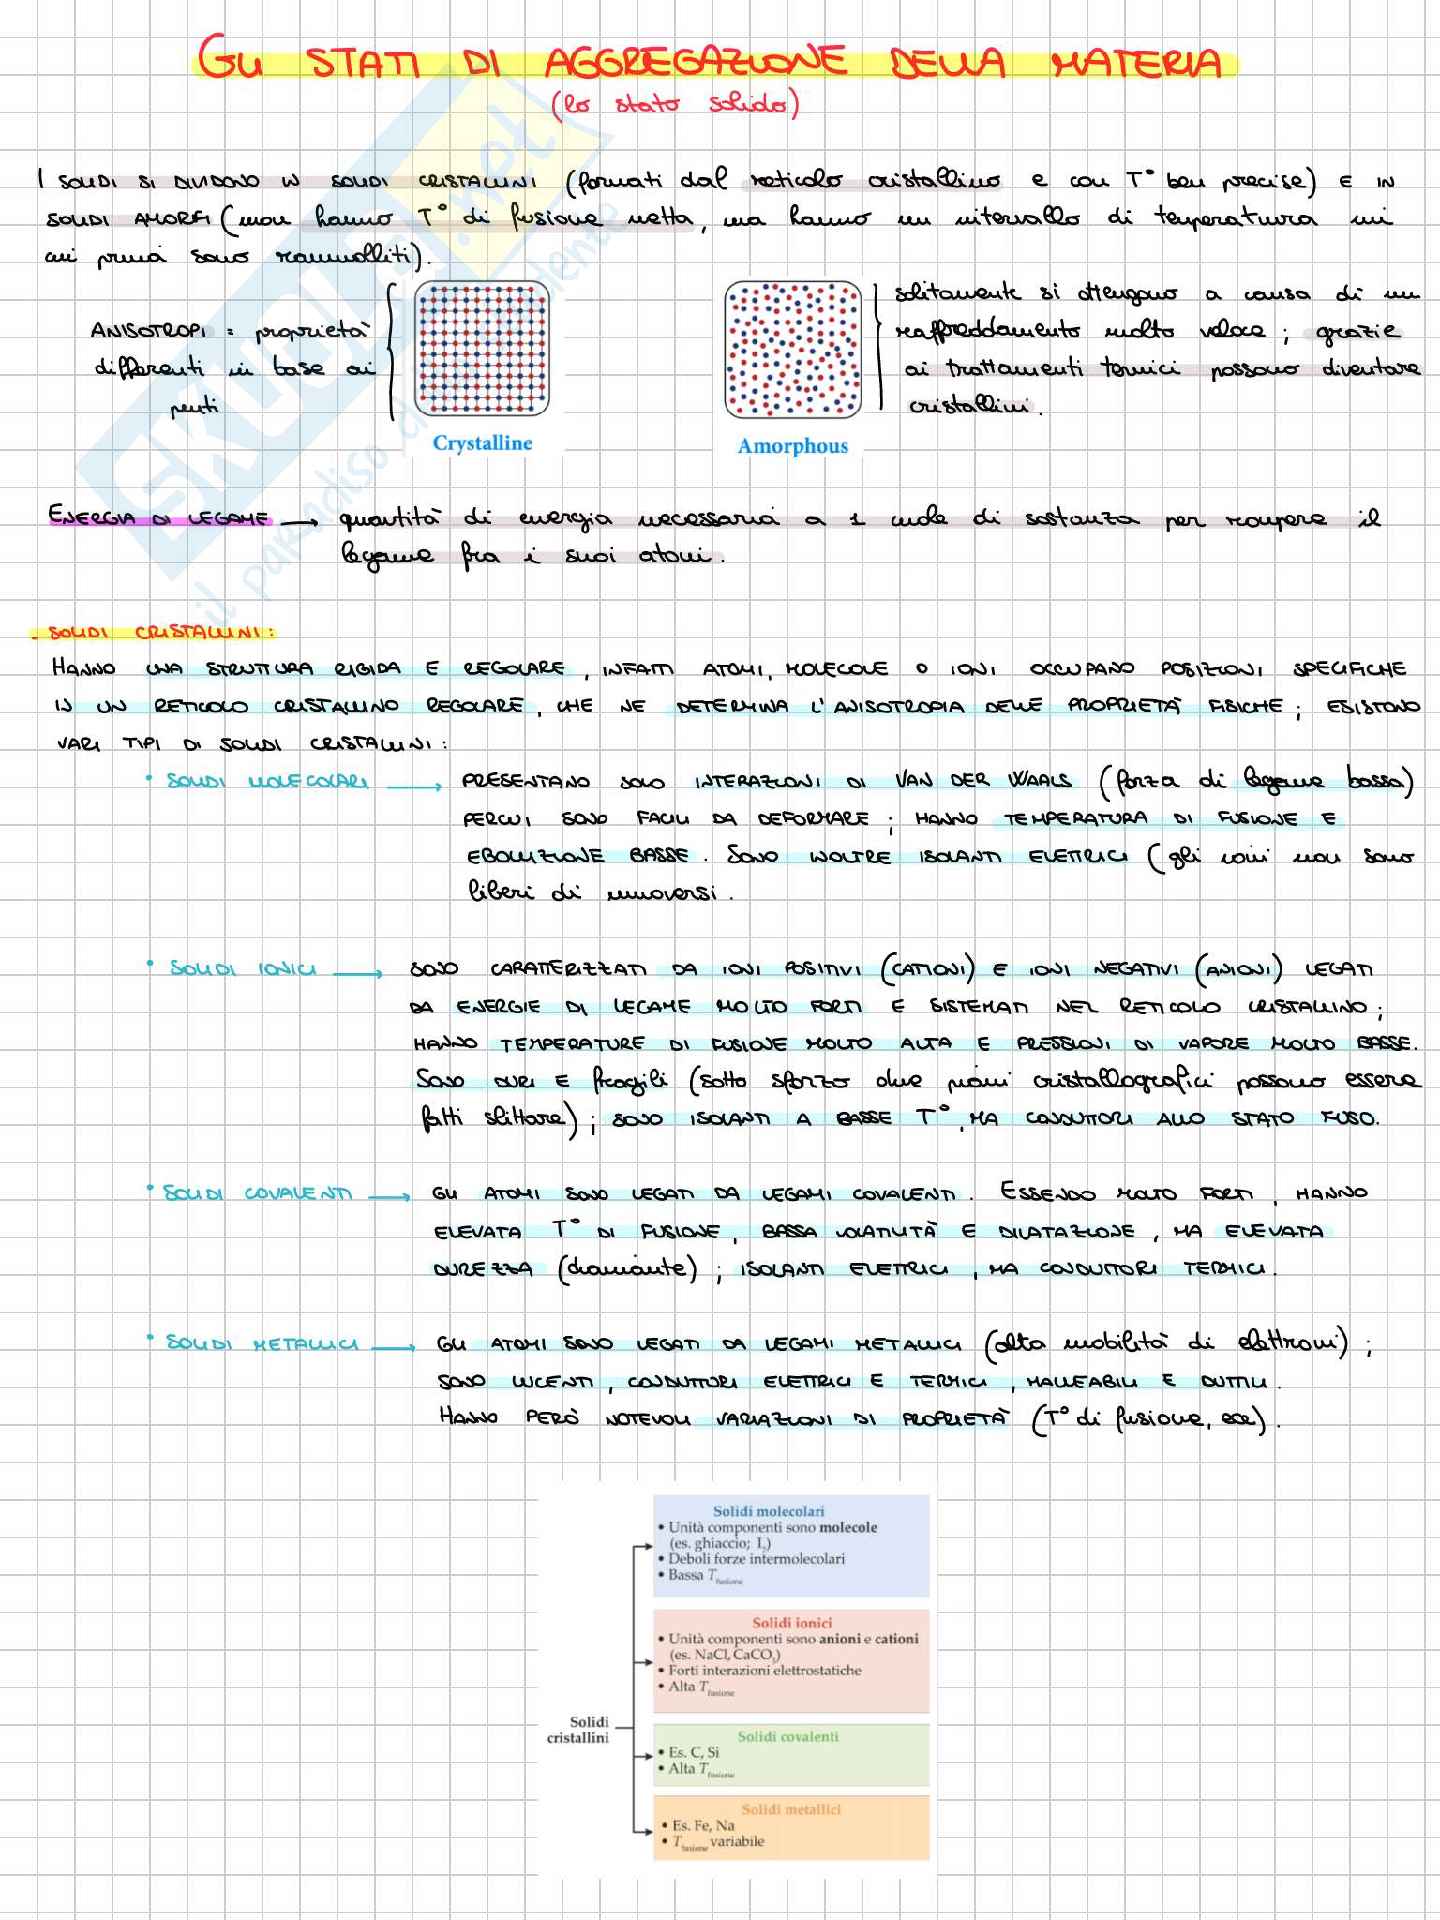 GLI STATI DI AGGREGAZIONE DELLA MATERIA
(lo stato solido)
I SOLIDI SI DIVIDONO IN SOLIDI CRISTALLINI (formati dal reticolo cristallino e con T° ben precise) E IN
SOLIDI AMORFI (non hanno T° di fusione netta, ma hanno un intervallo di temperatura in
cui prima sono rammolliti).
ANISOTROPI = proprietà
differenti in base ai
punti
Crystalline
Amorphous
solitamente si ottengono a causa di un
raffreddamento molto veloce; grazie
ai trattamenti termici possono diventare
cristallini.
ENERGIA DI LEGAME → quantità di energia necessaria a 1 mole di sostanza per rompere il
legame fra i suoi atomi.
- SOLIDI CRISTALLINI:
HANNO UNA STRUTTURA RIGIDA E REGOLARE, INFATTI ATOMI, MOLECOLE O IONI OCCUPANO POSIZIONI SPECIFICHE
IN UN RETICOLO CRISTALLINO REGOLARE, CHE NE DETERMINA L'ANISOTROPIA DELLE PROPRIETÀ FISICHE; ESISTONO
VARI TIPI DI SOLIDI CRISTALLINI:
• SOLIDI MOLECOLARI → PRESENTANO SOLO INTERAZIONI DI VAN DER WAALS (forza di legame bassa)
PERCUI SONO FACILI DA DEFORMARE; HANNO TEMPERATURA DI FUSIONE E
EBOLLIZIONE BASSE. SONO INOLTRE ISOLANTI ELETTRICI (gli ioni non sono
liberi di muoversi.
• SOLIDI IONICI → SONO CARATTERIZZATI DA IONI POSITIVI (CATIONI) E IONI NEGATIVI (ANIONI) LEGATI
DA ENERGIE DI LEGAME MOLTO FORTI E SISTEMATI NEL RETICOLO CRISTALLINO;
HANNO TEMPERATURE DI FUSIONE MOLTO ALTA E PRESSIONI DI VAPORE MOLTO BASSE.
SONO DURI E fragili (sotto sforzo due piani cristallografici possono essere
fatti slittare); SONO ISOLANTI A BASSE T°, MA CONDUTTORI ALLO STATO FUSO.
• SOLIDI COVALENTI → GLI ATOMI SONO LEGATI DA LEGAMI COVALENTI. ESSENDO MOLTO FORTI, HANNO
ELEVATA T° DI FUSIONE, BASSA VOLATILITÀ E DILATAZIONE, MA ELEVATA
DUREZZA (diamante); ISOLANTI ELETTRICI, MA CONDUTTORI TERMICI.
• SOLIDI METALLICI → GLI ATOMI SONO LEGATI DA LEGAMI METALLICI (alta mobilità di elettroni);
SONO LUCENTI, CONDUTTORI ELETTRICI E TERMICI, MALLEABILI E DUTTILI.
HANNO PERÒ NOTEVOLI VARIAZIONI DI PROPRIETÀ (T° di fusione, ecc).
Solidi cristallini
Solidi molecolari
• Unità componenti sono molecole
(es. ghiaccio; I₂)
• Deboli forze intermolecolari
• Bassa T fusione
Solidi ionici
• Unità componenti sono anioni e cationi
(es. NaCl, CaCO₃)
• Forti interazioni elettrostatiche
• Alta T fusione
Solidi covalenti
• Es. C, Si
• Alta T fusione
Solidi metallici
• Es. Fe, Na
• T fusione variabile
skuola.net
il paradiso dello studente